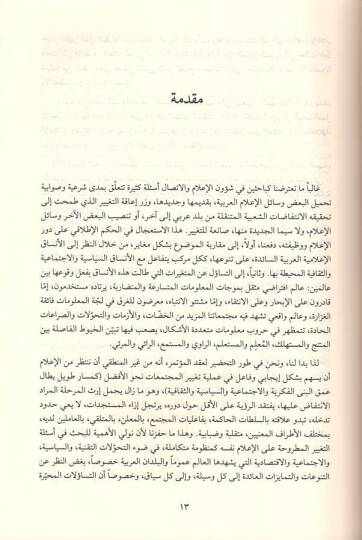 مقدمة
غالباً ما تعترضنا كباحثين في شؤون الإعلام والاتصال أسئلة كثيرة تتعلّق بمدى شرعية وصوابية
تحميل البعض وسائل الإعلام العربية، بقديمها وجديدها، وزر إعاقة التغيير الذي طمحت إلى
تحقيقه الانتفاضات الشعبية المتنقلة من بلد عربي إلى آخر، أو تنصيب البعض الآخر وسائل
الإعلام، ولا سيما الجديدة منها، صانعة للتغيير. هذا الاستعجال في الحكم الإطلاقي على دور
الإعلام ووظيفته، دفعنا، أولاً، إلى مقاربة الموضوع بشكل مغاير، من خلال النظر إلى الأنساق
الإعلامية العربية السائدة، على تنوعها، ككل مركب يتفاعل مع الأنساق السياسية والاجتماعية
والثقافية المحيطة بها. وثانياً، إلى التساؤل عن المتغيرات التي طالت هذه الأنساق بفعل وقوعها بين
عالمين: عالم افتراضي مثقل بموجات المعلومات المتسارعة والمتضاربة، يرتاده مستخدمون، إمّا
قادرون على الإبحار وعلى الانتقاء، وإمّا مشتتو الانتباه، معرضون للغرق في لجّة المعلومات فائقة
الغزارة، وعالم واقعي تشهد فيه مجتمعاتنا المزيد من الخضّات، والأزمات والتحوّلات والصراعات
الحادة، تتمظهر في حروب معلومات متعددة الأشكال، يصعب فيها تبيّن الخيوط الفاصلة بين
المنتج والمستهلك، المُعلِم والمستعلم، الراوي والمستمع، الرائي والمرئي.
لذا بدا لنا، ونحن في طور التحضير لعقد المؤتمر، أنه من غير المنطقي أن ننتظر من الإعلام
أن يسهم بشكل إيجابي وفاعل في عملية تغيير المجتمعات نحو الأفضل (كمسار طويل يطال
عمق البنى الفكرية والاجتماعية والسياسية والثقافية)، وهو ما زال يحمل إرث المرحلة المراد
الانتفاض عليها، يفتقد الرؤية على الأقل حول دوره، يرتجل إزاء المستجدات، لا يعي حدود
تدخله، تبدو علاقته بالسلطات الحاكمة، بفاعليات المجتمع، بالمعلن، بالمتلقي، بالعاملين لديه،
بمختلف الأطراف المعنيين، متقلبة وضبابية. وهذا ما حفزنا لأن نولي الأهمية للبحث في أسئلة
التغيير المطروحة على الإعلام نفسه كمنظومة متكاملة، في ضوء التحوّلات التقنية، والسياسية،
والاجتماعية والاقتصادية التي يشهدها العالم عموماً والبلدان العربية خصوصاً، بغض النظر عن
التنوعات والتمايزات العائدة إلى كل وسيلة، وإلى كل سياق، وخصوصاً أن التساؤلات المحيّرة
١٣